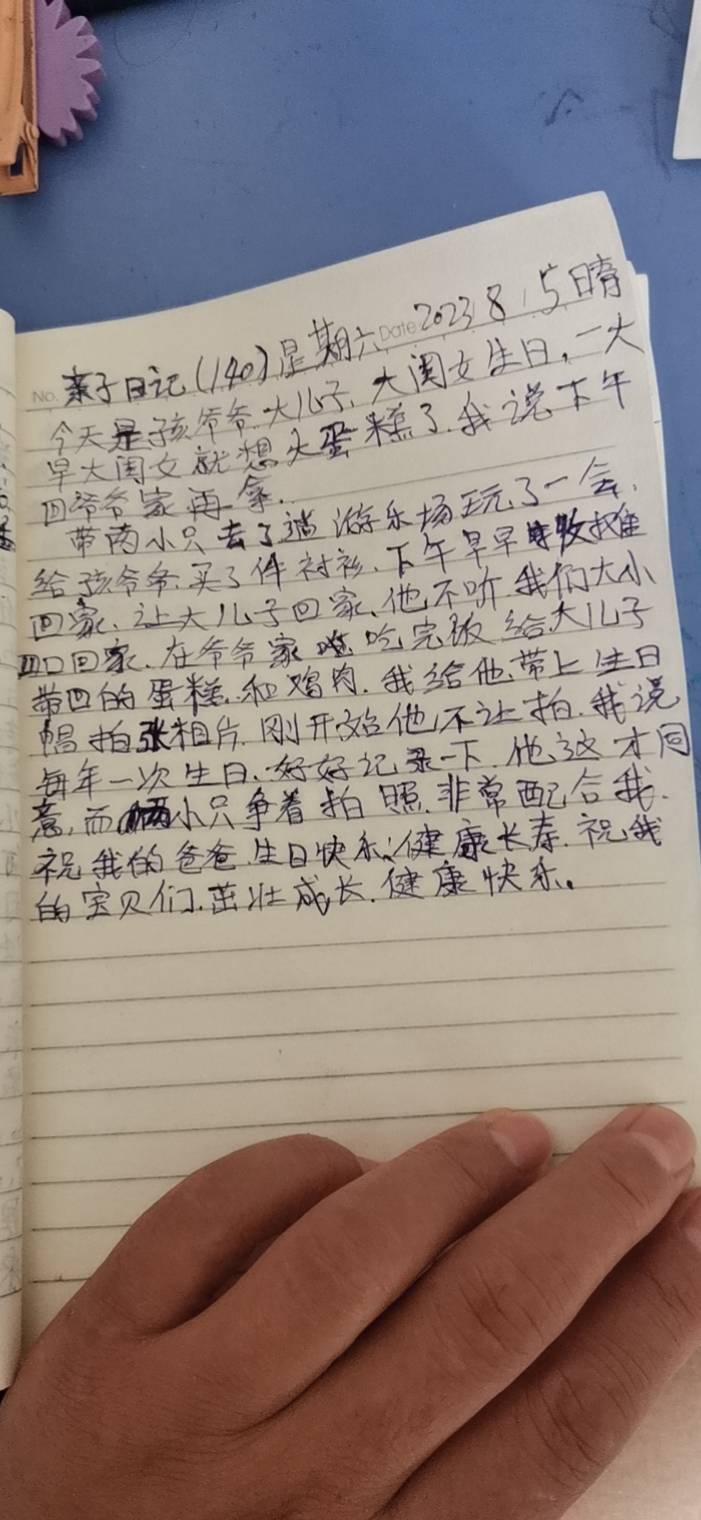 No. 亲子日记(140)星期六 Date 2023 8 5 晴
今天是孩爷爷.大儿子.大闺女生日,一大
早大闺女就想买蛋糕了.我说下午
回爷爷家再拿.
带两小只去了游乐场玩了一会,
给孩爷爷.买了件衬衫.下午早早收摊
回家.让大儿子回家,他不听我们大小
四口回家.在爷爷家吃完饭给大儿子
带回的蛋糕.和鸡肉.我给他带上生日
帽拍张相片.刚开始他不让拍.我说
每年一次生日.好好记录一下.他这才同
意,而俩小只争着拍照.非常配合我.
祝我的爸爸.生日快乐,健康长寿.祝我
的宝贝们.茁壮成长.健康快乐。